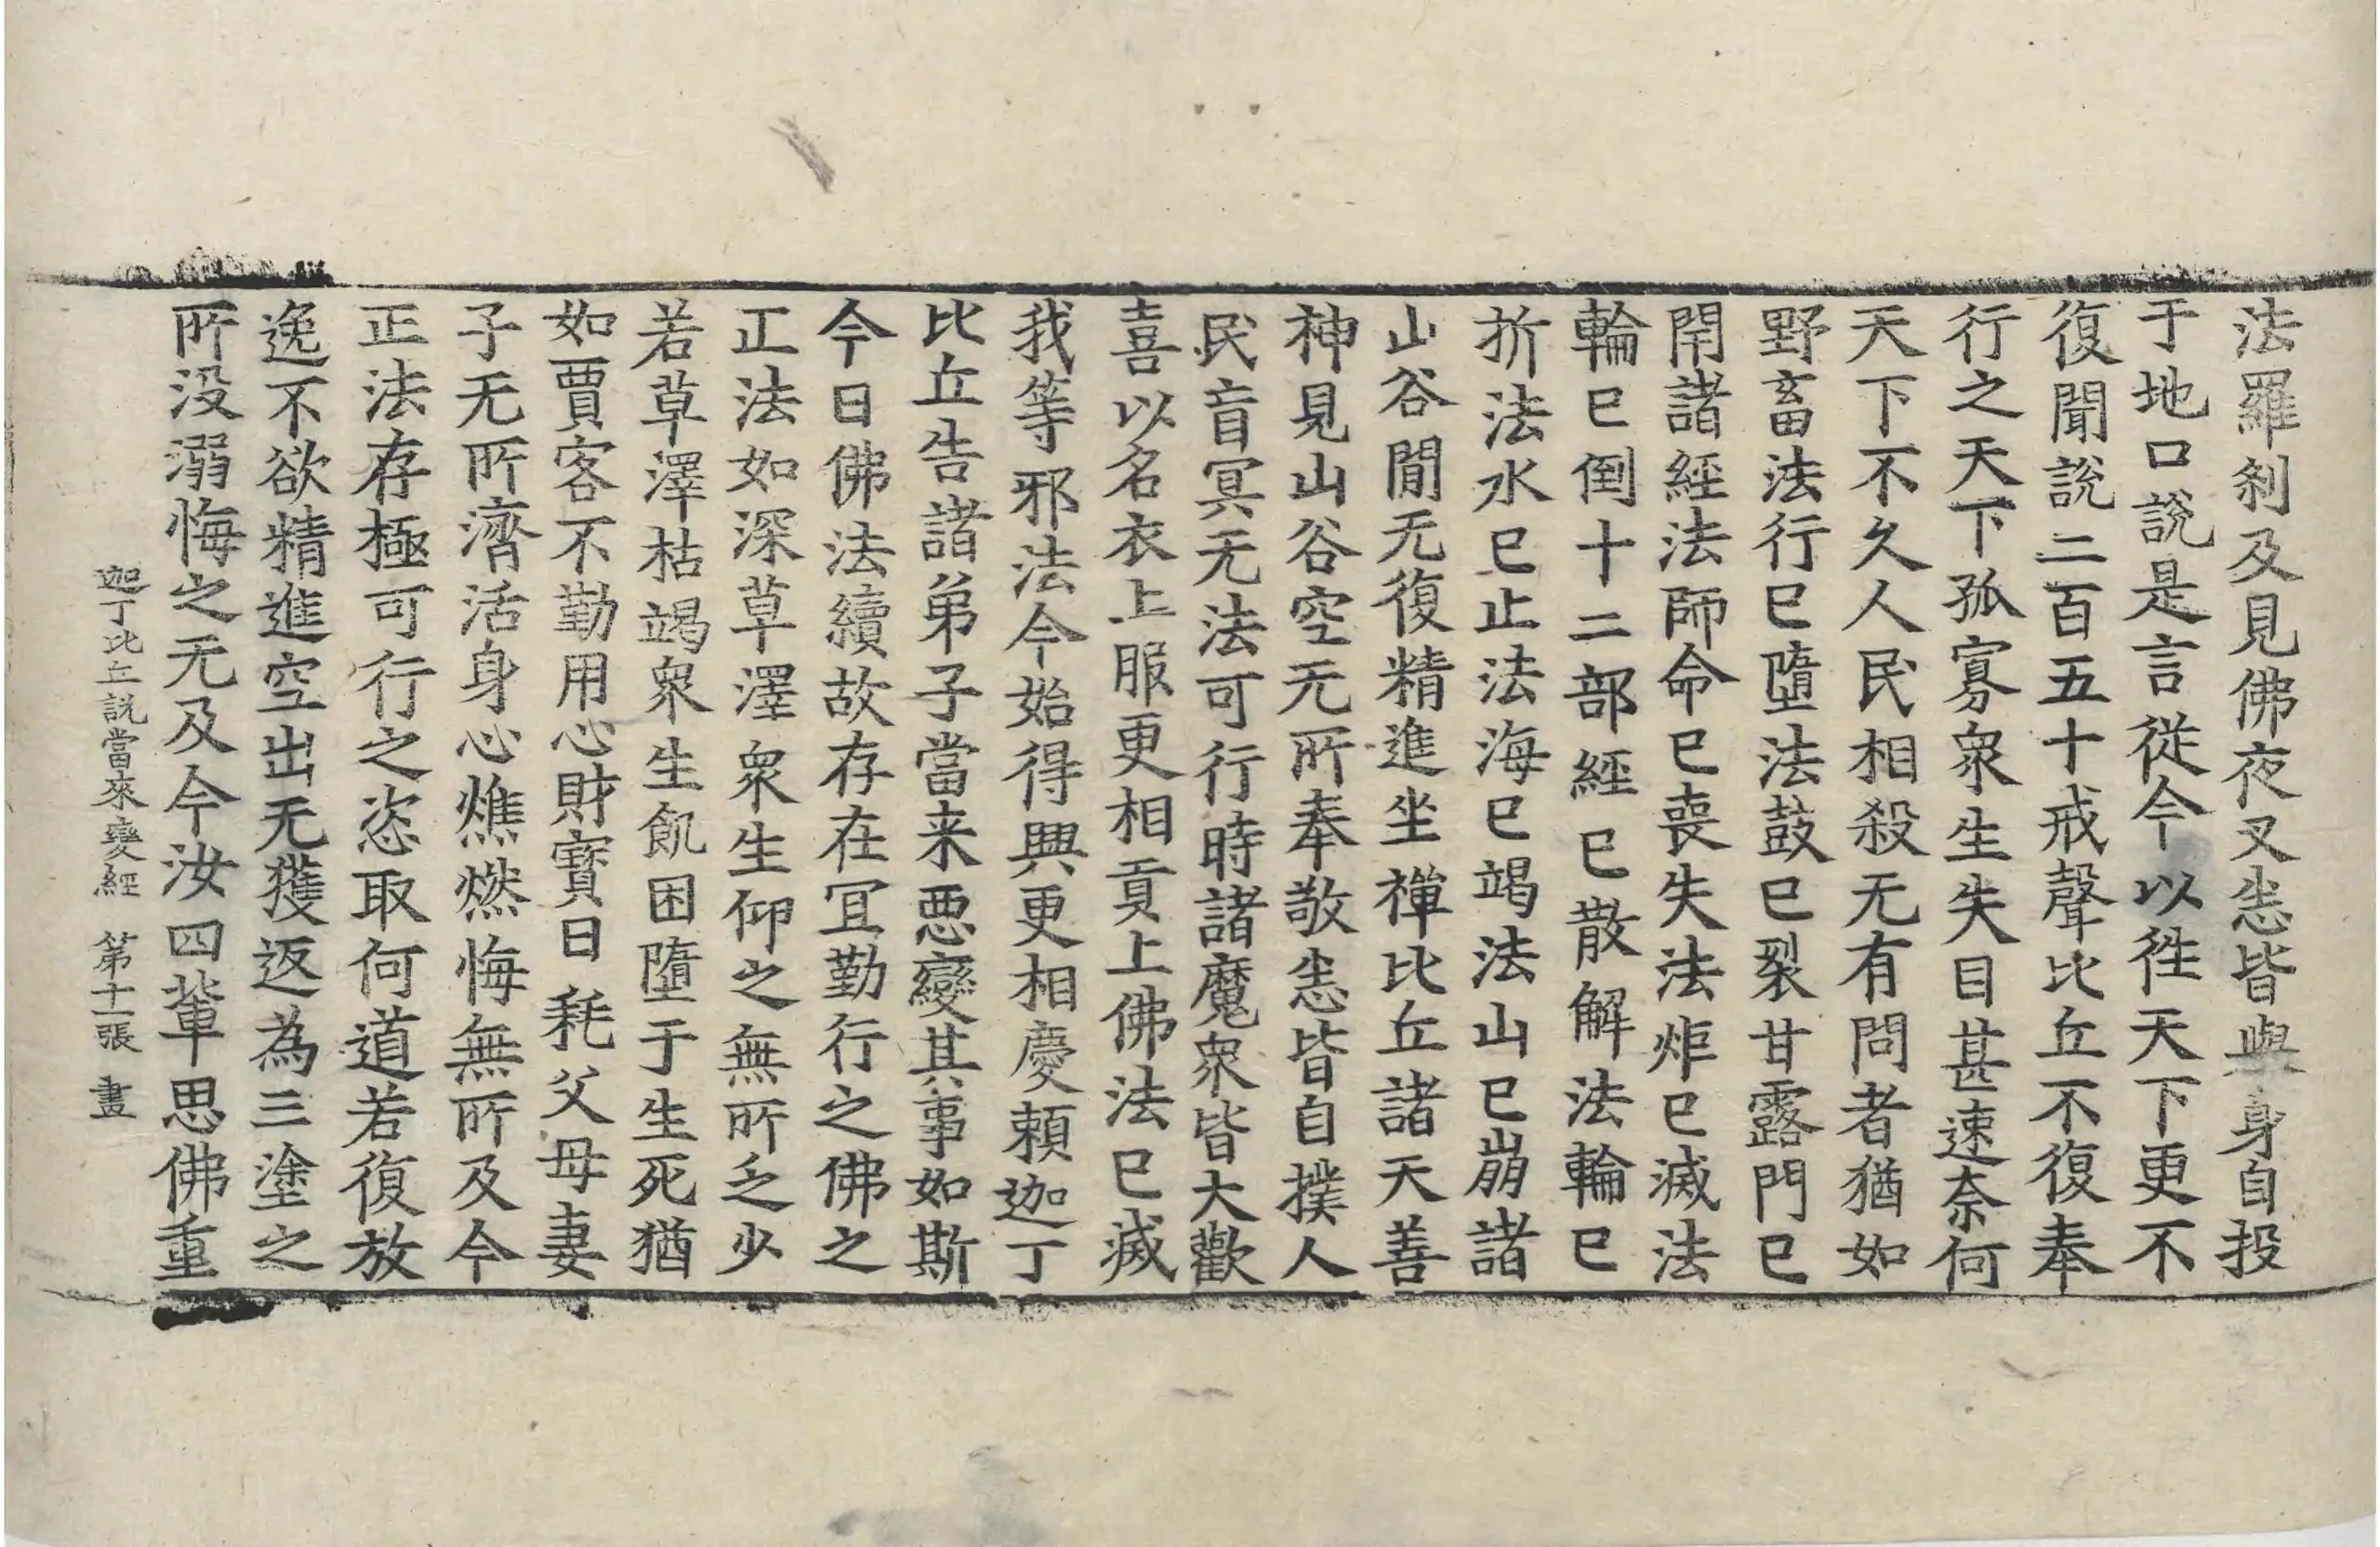 法羅刹及見佛夜叉恙皆與身自投
于地口說是言從今以徃天下更不
復聞說二百五十戒聲比丘不復奉
行之天下孤寡衆生失目甚速奈何
天下不久人民相殺无有問者猶如
野畜法行已墮法鼓已裂甘露門已
閇諸經法師命已喪失法炬已滅法
輪已倒十二部經已散解法輪已
折法水已止法海已竭法山已崩諸
山谷閒无復精進坐禪比丘諸天善
神見山谷空无所奉敬恙皆自撲人
民盲冥无法可行時諸魔衆皆大歡
喜以名衣上服更相貢上佛法已滅
我等邪法今始得興更相慶賴迦丁
比丘告諸弟子當来惡變其事如斯
今日佛法續故存在冝勤行之佛之
正法如深草澤衆生仰之無所乏少
若草澤枯竭衆生飢困墮于生死猶
如賈客不勤用心財寳日耗父母妻
子无所濟活身心燋燃悔無所及今
正法存極可行之恣取何道若復放
逸不欲精進空出无獲返為三塗之
所没溺悔之无及今汝四輩思佛重
迦丁比丘說當來變經 第十一張 畫